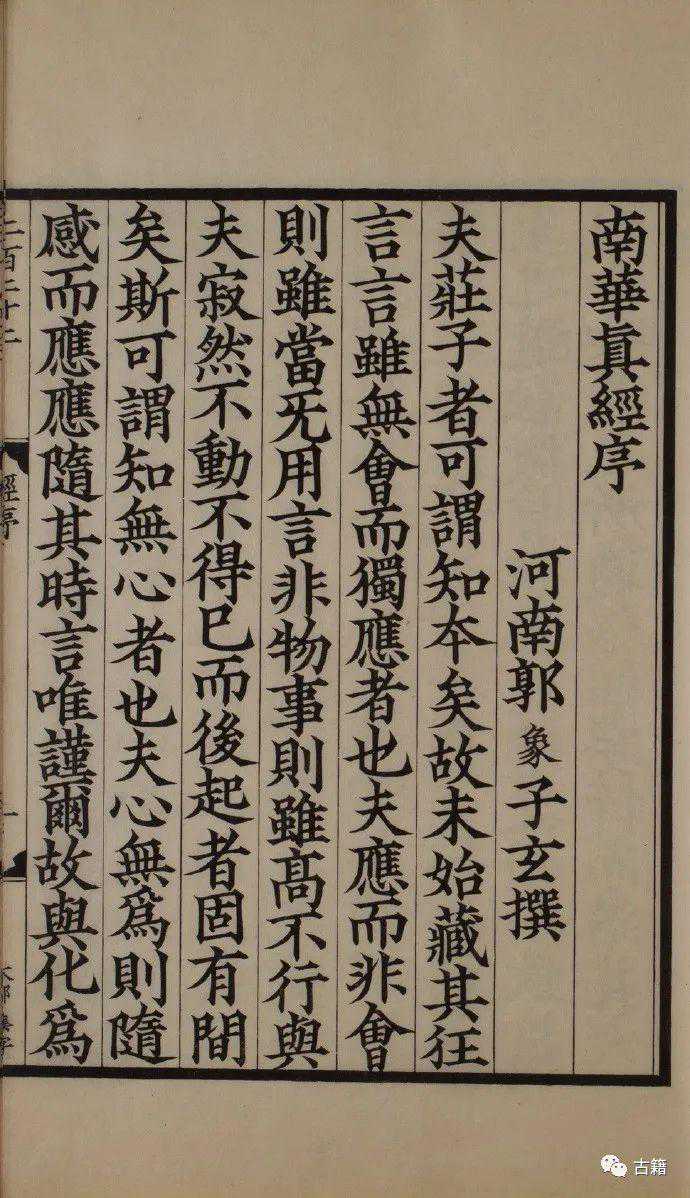 南華眞經序
河南郭象子玄撰
夫莊子者可謂知夲矣故未始藏其狂
言言雖無會而獨應者也夫應而非會
則雖當旡用言非物事則雖高不行與
夫寂然不動不得已而後起者固有間
矣斯可謂知無心者也夫心無爲則隨
感而應應隨其時言唯謹爾故與化爲
二百二十二
經序
一
古籍